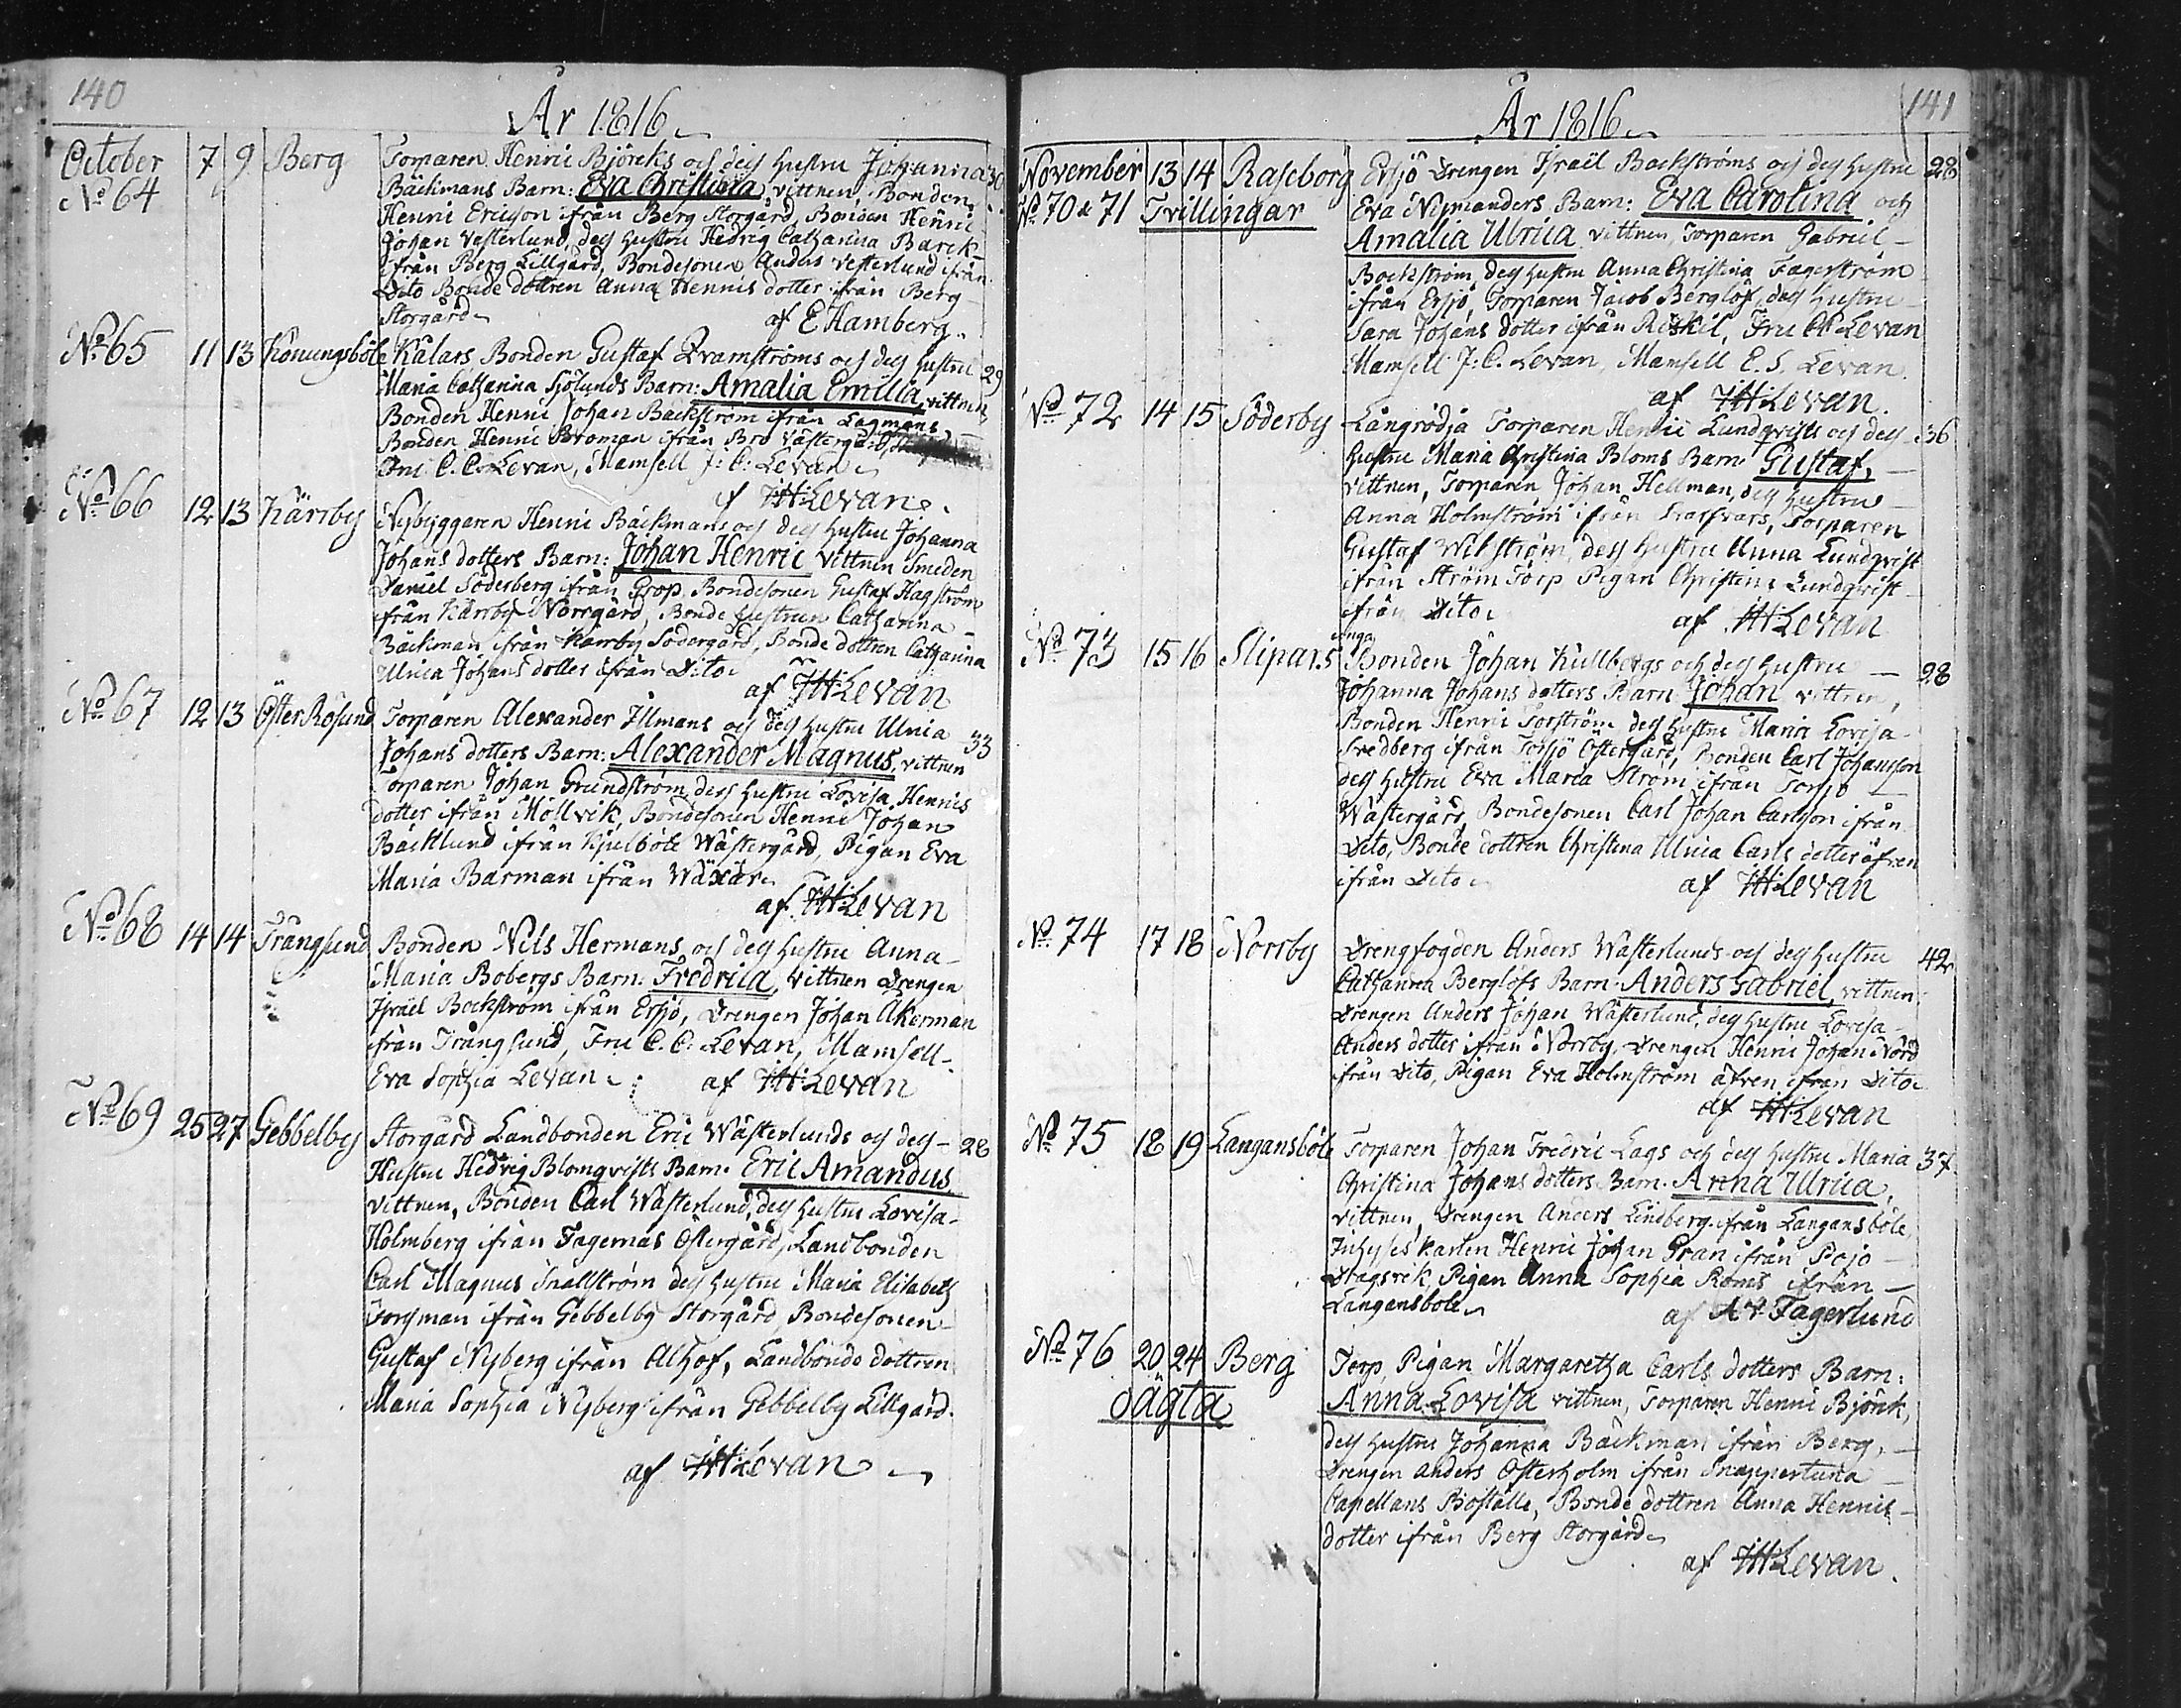 140
År 1816
October 7 9 Berg Torparen Henric Björcks och dess hustru Johanna 30
No 64 Bäckmans Barn: Eva Christina, vittnen, Bonden
Henric Ericson ifrån Berg Storgård, Bonden Henric
Johan Vesterlund, dess hustru Hedvig Catharina Barck
ifrån Berg Lillgård, Bondesonen Anders Vesterlund ifrån
Dito Bonde dottren Anna Henrics dotter ifrån Berg
Storgård
af E Hamberg.
No 65 11 13 Konungsböle Kälars Bonden Gustaf Qvarnströms och dess hustru 29
Maria Catharina Sjölunds Barn: Amalia Emilia, vittnen
Bonden Henric Johan Backström ifrån Lagmans,
Bonden Henric Broman ifrån Bro Västergård,
Fru C. C. Levan, Mamsell J: C: Levan
af JH Levan.
No 66 12 13 Kärrby Nybyggaren Henric Bäckmans och dess hustru Johanna
Johans dotters Barn: Johan Henric vittnen Smeden
Daniel Söderberg ifrån Grop, Bondesonen Gustaf Hagström
ifrån Kärrby Norrgård, Bonde hustrun Catharina
Bäckman ifrån Kärrby Södergård, Bonde dottren Catharina
Ulrica Johans dotter ifrån Dito
af JH Levan
No 67 12 13 Öster Rösund Torparen Alexander Illmans och dess hustru Ulrica 33
Johans dotters Barn: Alexander Magnus, vittnen
Torparen Johan Grundström, dess hustru Lovisa Henrics
dotter ifrån Mollvik, Bondesonen Henric Johan
Bäcklund ifrån Kjulböle Wästergård, Pigan Eva
Maria Barman ifrån Wäxär
af JH Levan
No 68 14 14 Trångsund Bonden Nils Hermans, och dess hustru Anna
Maria Bobergs Barn: Fredrica, vittnen Drengen
Israël Bockström ifrån Ersjö, Drengen Johan Åkerman
ifrån Trångsund, Fru C. C. Levan, Mamsell
Eva Sophia Levan
af JH Levan
No 69 25 27 Gebbelby Storgård Landbonden Eric Wästerlunds och dess 28
Hustru Hedvig Blomqvists Barn: Eric Amandus
vittnen, Bonden Carl Wästerlund, dess hustru Lovisa
Holmberg ifrån Fagernäs Östergård, Landbonden
Carl Magnus Snällström dess hustru Maria Elisabeth
Forsman ifrån Gebbelby Storgård, Bondesonen
Gustaf Nyberg ifrån Alhof, Landbonde dottren
Maria Sophia Nyberg ifrån Gebbelby Lillgård.
af JH Levan
141
År 1816
November 13 14 Raseborg Ersjö Drengen Israël Bockströms och dess hustru 28
No 70 & 71 Tvillingar Eva Nymanders Barn: Eva Carolina och
Amalia Ulrica vittnen, Torparen Gabriel
Bockström, dess hustru Anna Christina Fagerström
ifrån Ersjö, Torparen Jacob Berglöf, dess hustru
Sara Johans dotter ifrån Riskil, Fru CC Levan
Mamsell J: C. Levan, Mamsell E. S. Levan.
af JH Levan.
No 72 14 15 Söderby Långrödja Torparen Henric Lundqvists och dess 36
hustru Maria Christina Bloms Barn: Gustaf,
vittnen, Torparen Johan Hellman, dess hustru
Anna Holmström ifrån Torparen
Gustaf Wikström, dess hustru Anna Lundqvist
ifrån Ström Torp Pigan Christina Lundqvist
ifrån Dito
af JH Levan
No 73 15 16 Slipars Bonden Johan Kullbergs och dess hustru 28
Johanna Johans dotters Barn Johan vittnen,
Bonden Henric Torström dess hustru Maria Lovisa
Fredberg ifrån Torsjö Östergård, Bonden Carl Johansson
dess hustru Eva Maria Ström ifrån Torsjö
Wästergård, Bondesonen Carl Johan Carlsson ifrån
Dito, Bonde dottren Christina Ulrica Carls dotter äfven
ifrån Dito
af JH Levan
No 74 17 18 Norrby Drengfogden Anders Wästerlunds och dess hustru 42
Catharina Berglöfs Barn: Anders Gabriel, vittnen,
Drengen Anders Johan Wästerlund, dess hustru Lovisa
Anders dotter ifrån Norrby, Drengen Henric Johan Nord
ifrån Dito, Pigan Eva Holmström äfven ifrån Dito
af JH Levan
No 75 18 19 Langansböle Torparen Johan Fredric Lags och dess hustru Maria 37
Christina Johans dotters Barn: Anna Ulrica,
vittnen, Drengen Anders Lindberg ifrån Langansböle,
Inhyses karlen Henric Johan Gran ifrån Pojo
Dragsvik, Pigan Anna Sophia Roms ifrån
Langansböle
af A: Fagerlund
No 76 20 24 Berg Torp, Pigan Margaretha Carls dotters Barn:
oägta Anna Lovisa vittnen, Torparen Henric Björck,
dess hustru Johanna Bäckman ifrån Berg,
Drengen Anders Österholm ifrån Snappertuna
Capellans Boställe, Bonde dottren Anna Henrics
dotter ifrån Berg Storgård
af JH Levan.